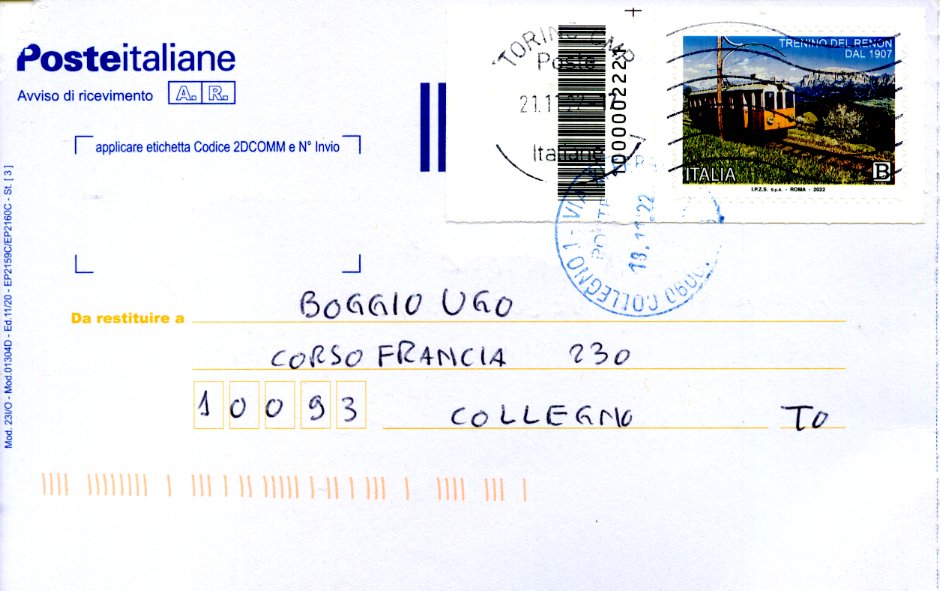 Posteitaliane
Avviso di ricevimento A. R.
applicare etichetta Codice 2DCOMM e N° Invio
TORINO CMP
Poste
21.11.22
Italiane
10000002222
TRENINO DEL RENON
DAL 1907
ITALIA
B
I.P.Z.S. S.p.A. - ROMA - 2022
COLLEGNO 1 - VIA
18.11.22
Da restituire a BOGGIO UGO
CORSO FRANCIA 230
10093 COLLEGNO TO
Mod. 23I/O - Mod.01304D - Ed.11/20 - EP2159C/EP2160C - St. [3]